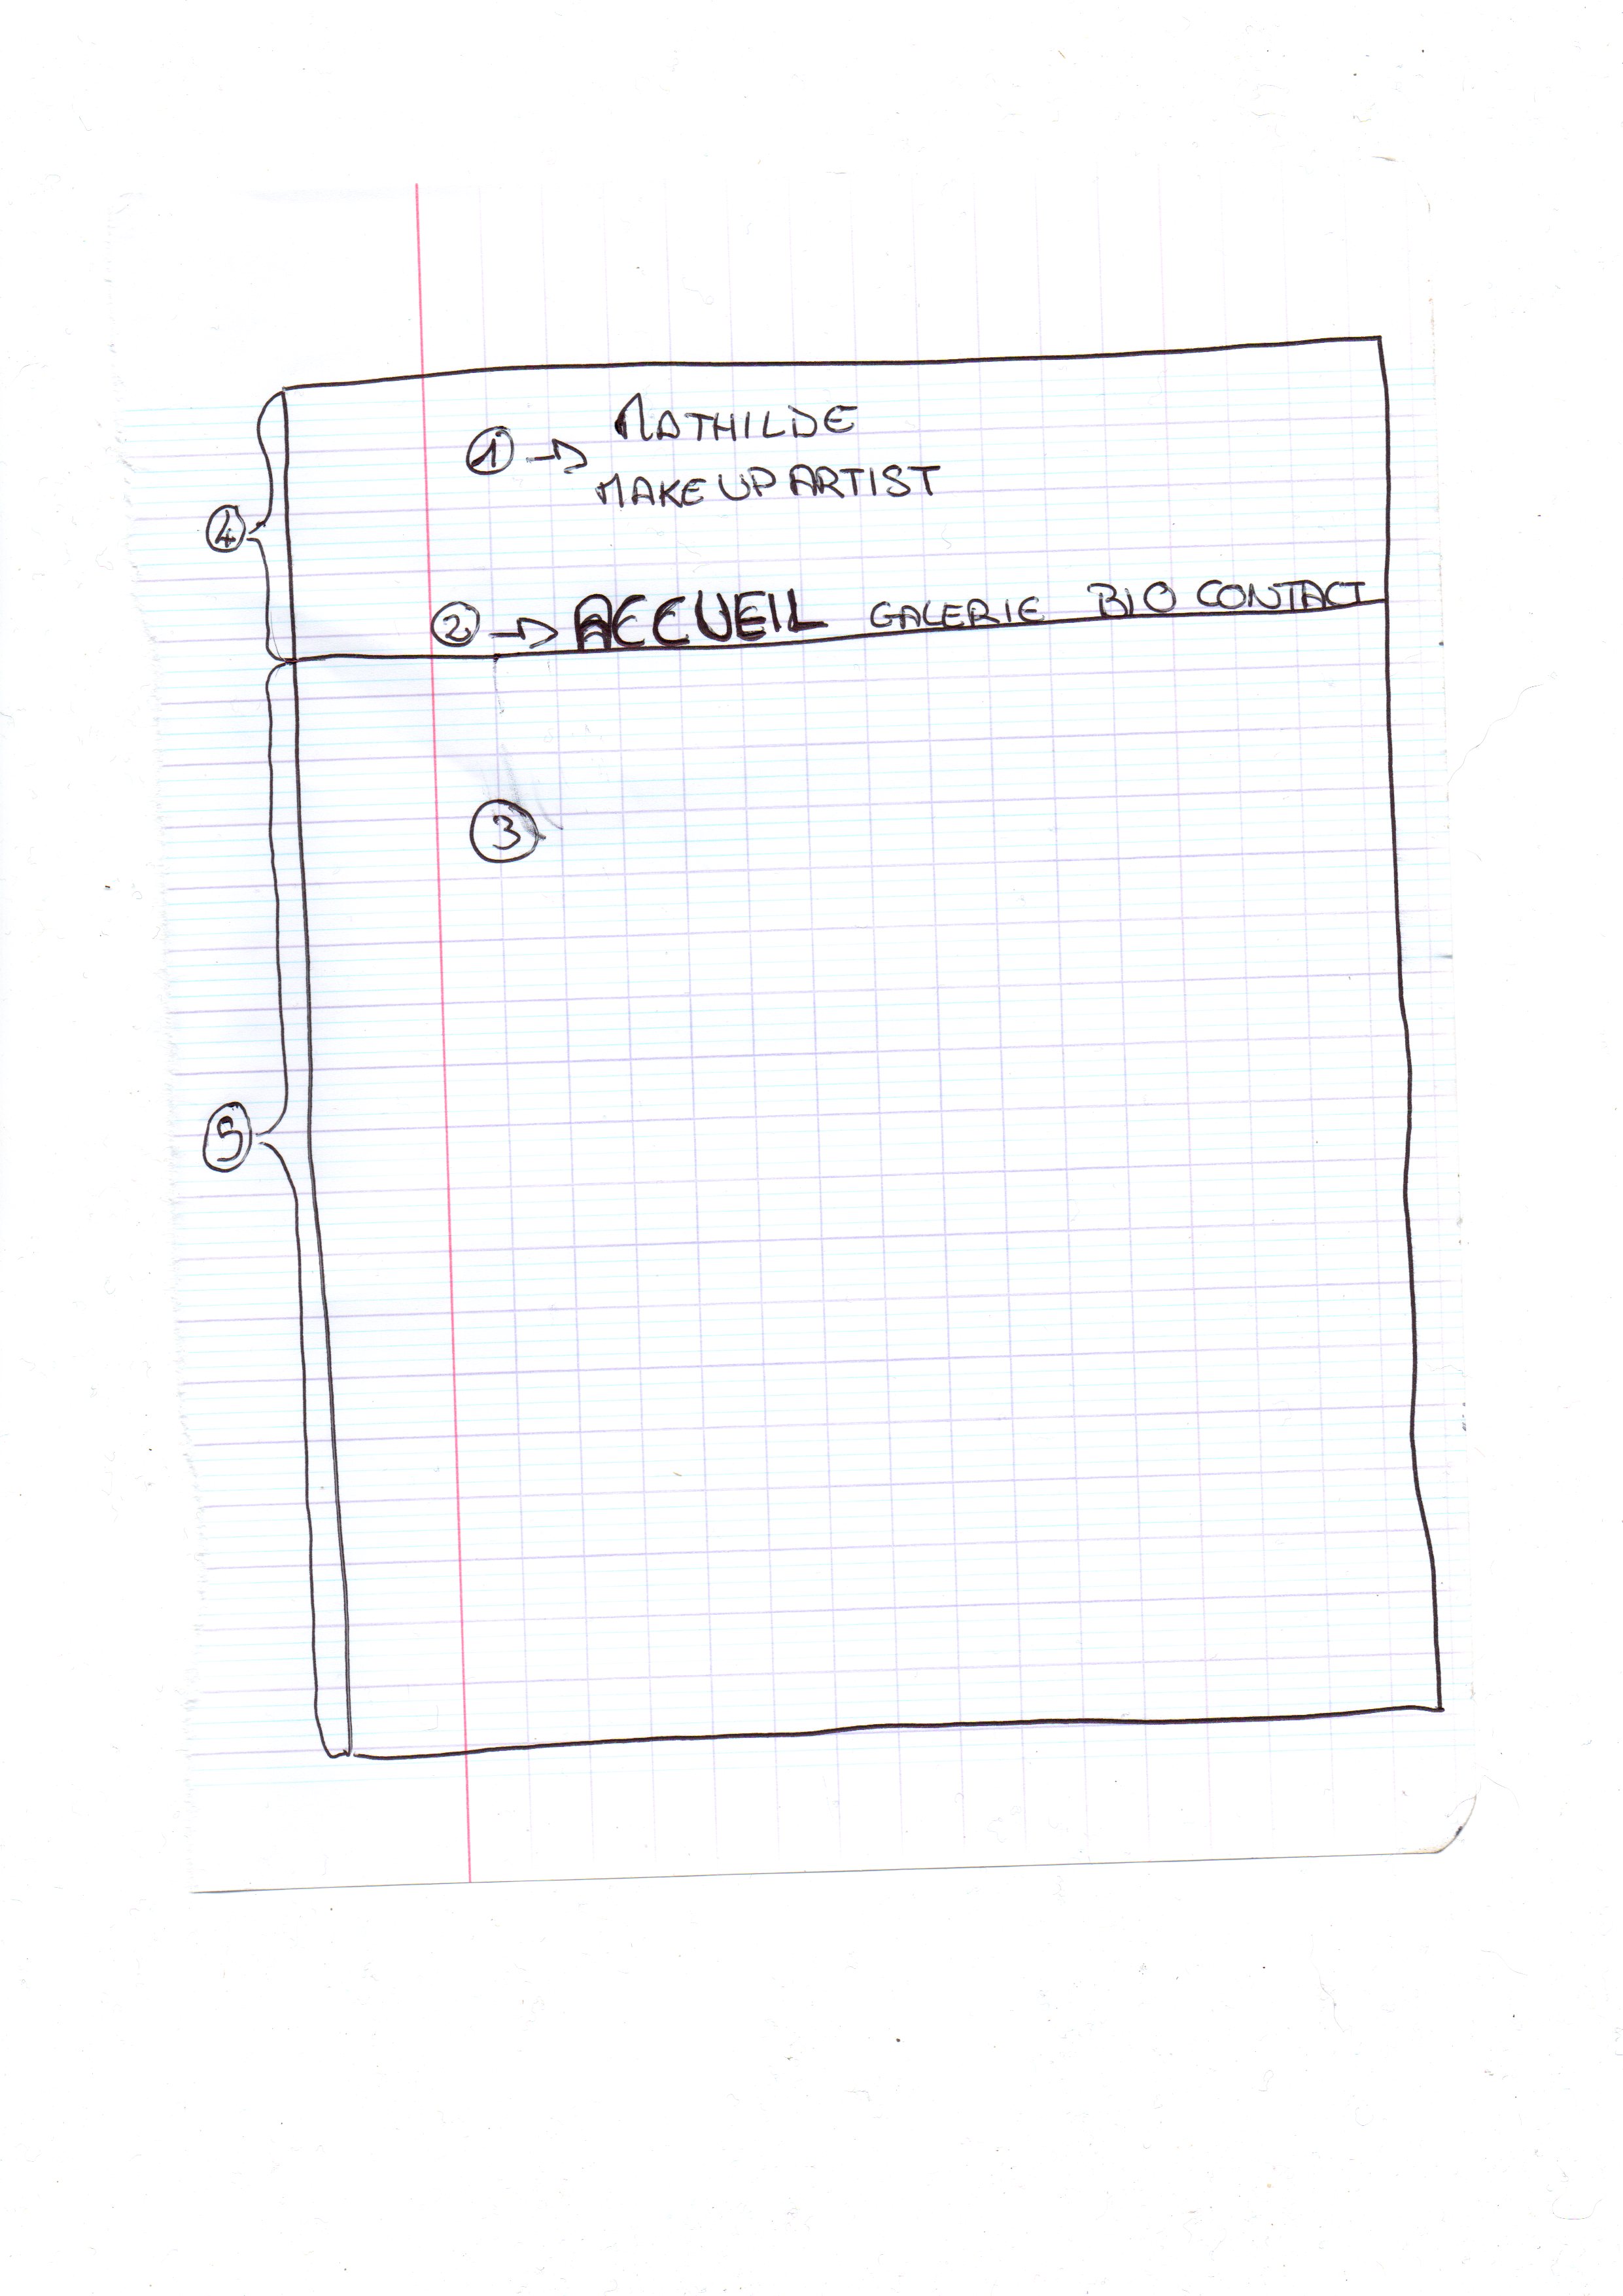 ① → MATHILDE
MAKE UP ARTIST
④
② → ACCUEIL GALERIE BIO CONTACT
③
⑤